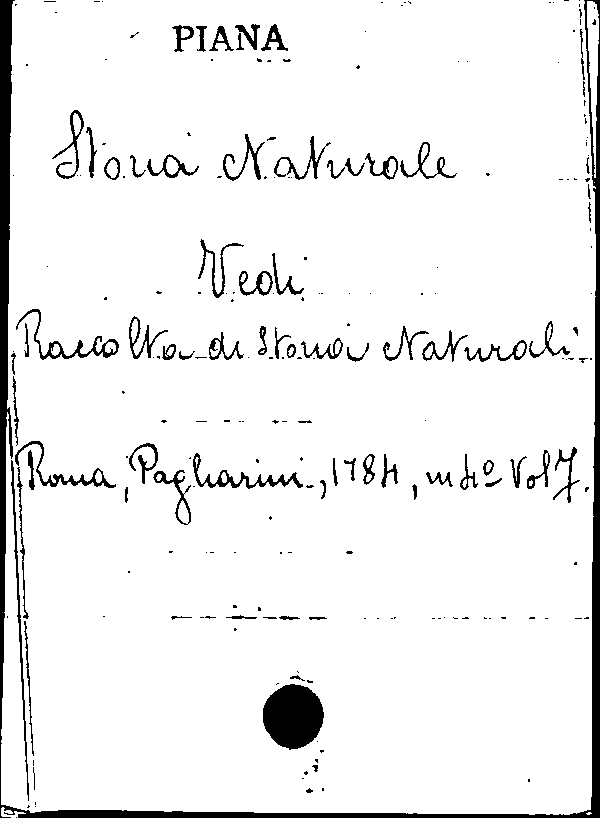 PIANA
Storia Naturale
Vedi
Raccolta di Storia Naturali
Roma, Pagliarini, 1784, in 4º Vol 7.